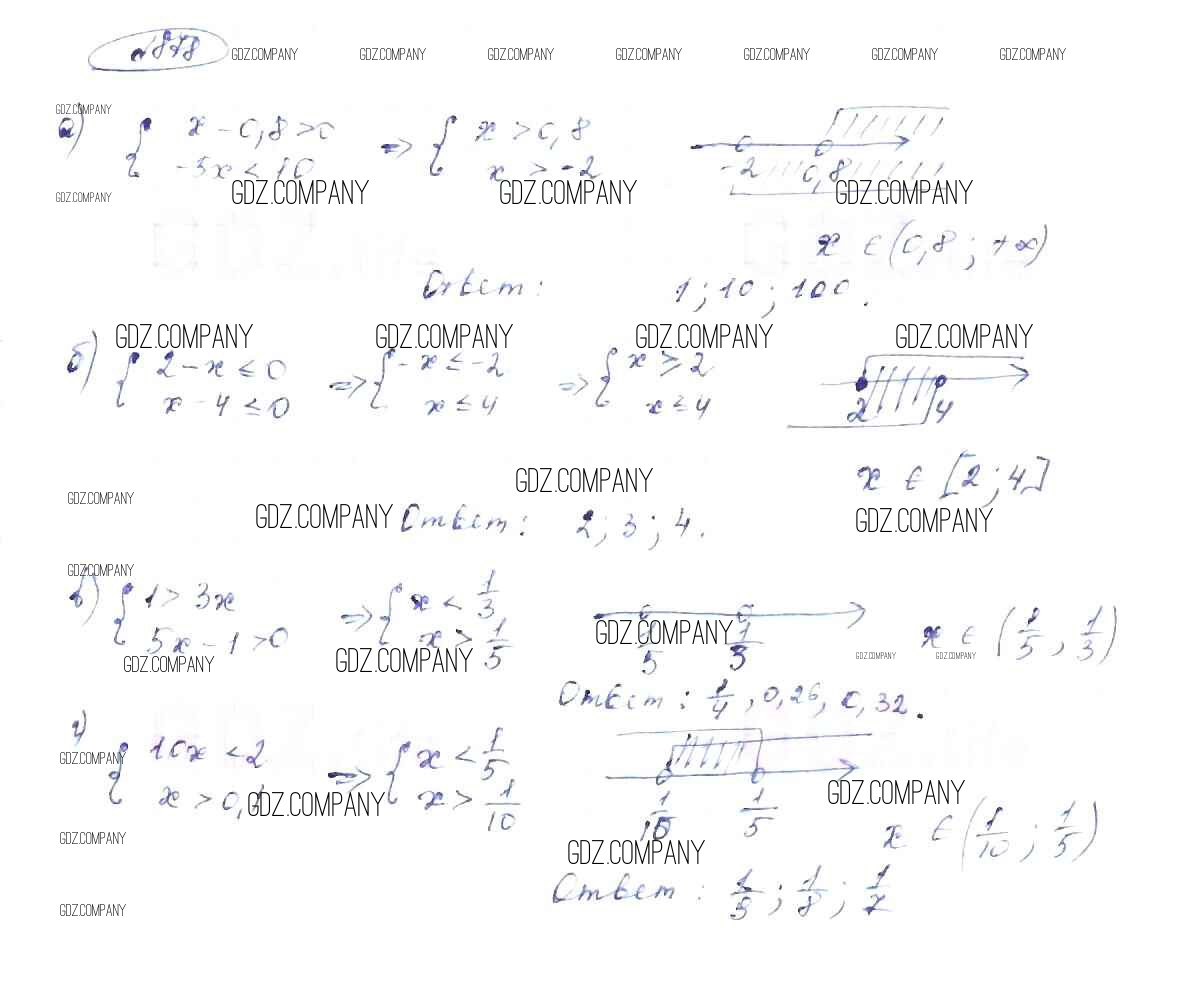 №878
GDZ.COMPANY GDZ.COMPANY GDZ.COMPANY GDZ.COMPANY GDZ.COMPANY GDZ.COMPANY GDZ.COMPANY
GDZ.COMPANY
а) { x - 0,8 > 0 => { x > 0,8
-5x < 10 x > -2 -2 0,8
GDZ.COMPANY GDZ.COMPANY GDZ.COMPANY GDZ.COMPANY
x ∈ (0,8 ; +∞)
Ответ: 1 ; 10 ; 100.
GDZ.COMPANY GDZ.COMPANY GDZ.COMPANY GDZ.COMPANY
б) { 2 - x ≤ 0 => { -x ≤ -2 => { x ≥ 2
x - 4 ≤ 0 x ≤ 4 x ≤ 4 2 4
GDZ.COMPANY x ∈ [2 ; 4]
GDZ.COMPANY
GDZ.COMPANY Ответ: 2 ; 3 ; 4. GDZ.COMPANY
GDZ.COMPANY
в) { 1 > 3x => { x < 1/3
5x - 1 > 0 x > 1/5 GDZ.COMPANY 1/5 1/3 x ∈ (1/5 , 1/3)
GDZ.COMPANY GDZ.COMPANY GDZ.COMPANY GDZ.COMPANY
Ответ: 1/4 , 0,26 , 0,32.
г) { 10x < 2 => { x < 1/5
GDZ.COMPANY
x > 0,1 x > 1/10 1/10 1/5
GDZ.COMPANY GDZ.COMPANY
x ∈ (1/10 ; 1/5)
GDZ.COMPANY GDZ.COMPANY
Ответ: ; 1/8 ; 1/7
GDZ.COMPANY